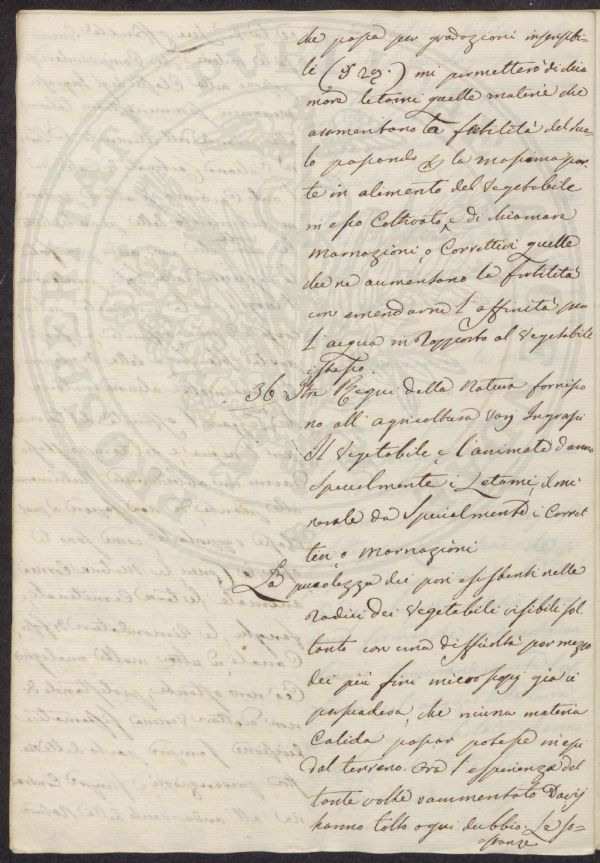 che passa per gradazioni insensibi-
li (§ 29.) mi permetterò di chia
mare letami quelle materie che
aumentano la fertilità del suo-
lo passando per la massima par
te in alimento del vegetabile
in esso coltivato, e di chiamare
marnazioni, o correttivi quelle
che ne aumentano la fertilità
con emendarne l'affinità per
l'acqua in rapporto al vegetabile
istesso.
36 I tre Regni della natura fornisco
no all'agricoltura varj Ingrassi
Il vegetabile, e l'animale danno
specialmente i Letami, il mi
nerale dà specialmente i Corret
tivi, o marnazioni
La piccolezza dei pori esistenti nelle
radici dei vegetabili visibili sol
tanto con una difficoltà per mezzo
dei più fini microscopj già ci
persuadeva, che niuna materia
solida passar potesse in essi
dal terreno. Ora l'esperienze del
tante volte rammentato Davy
hanno tolto ogni dubbio. Le so-
stanze